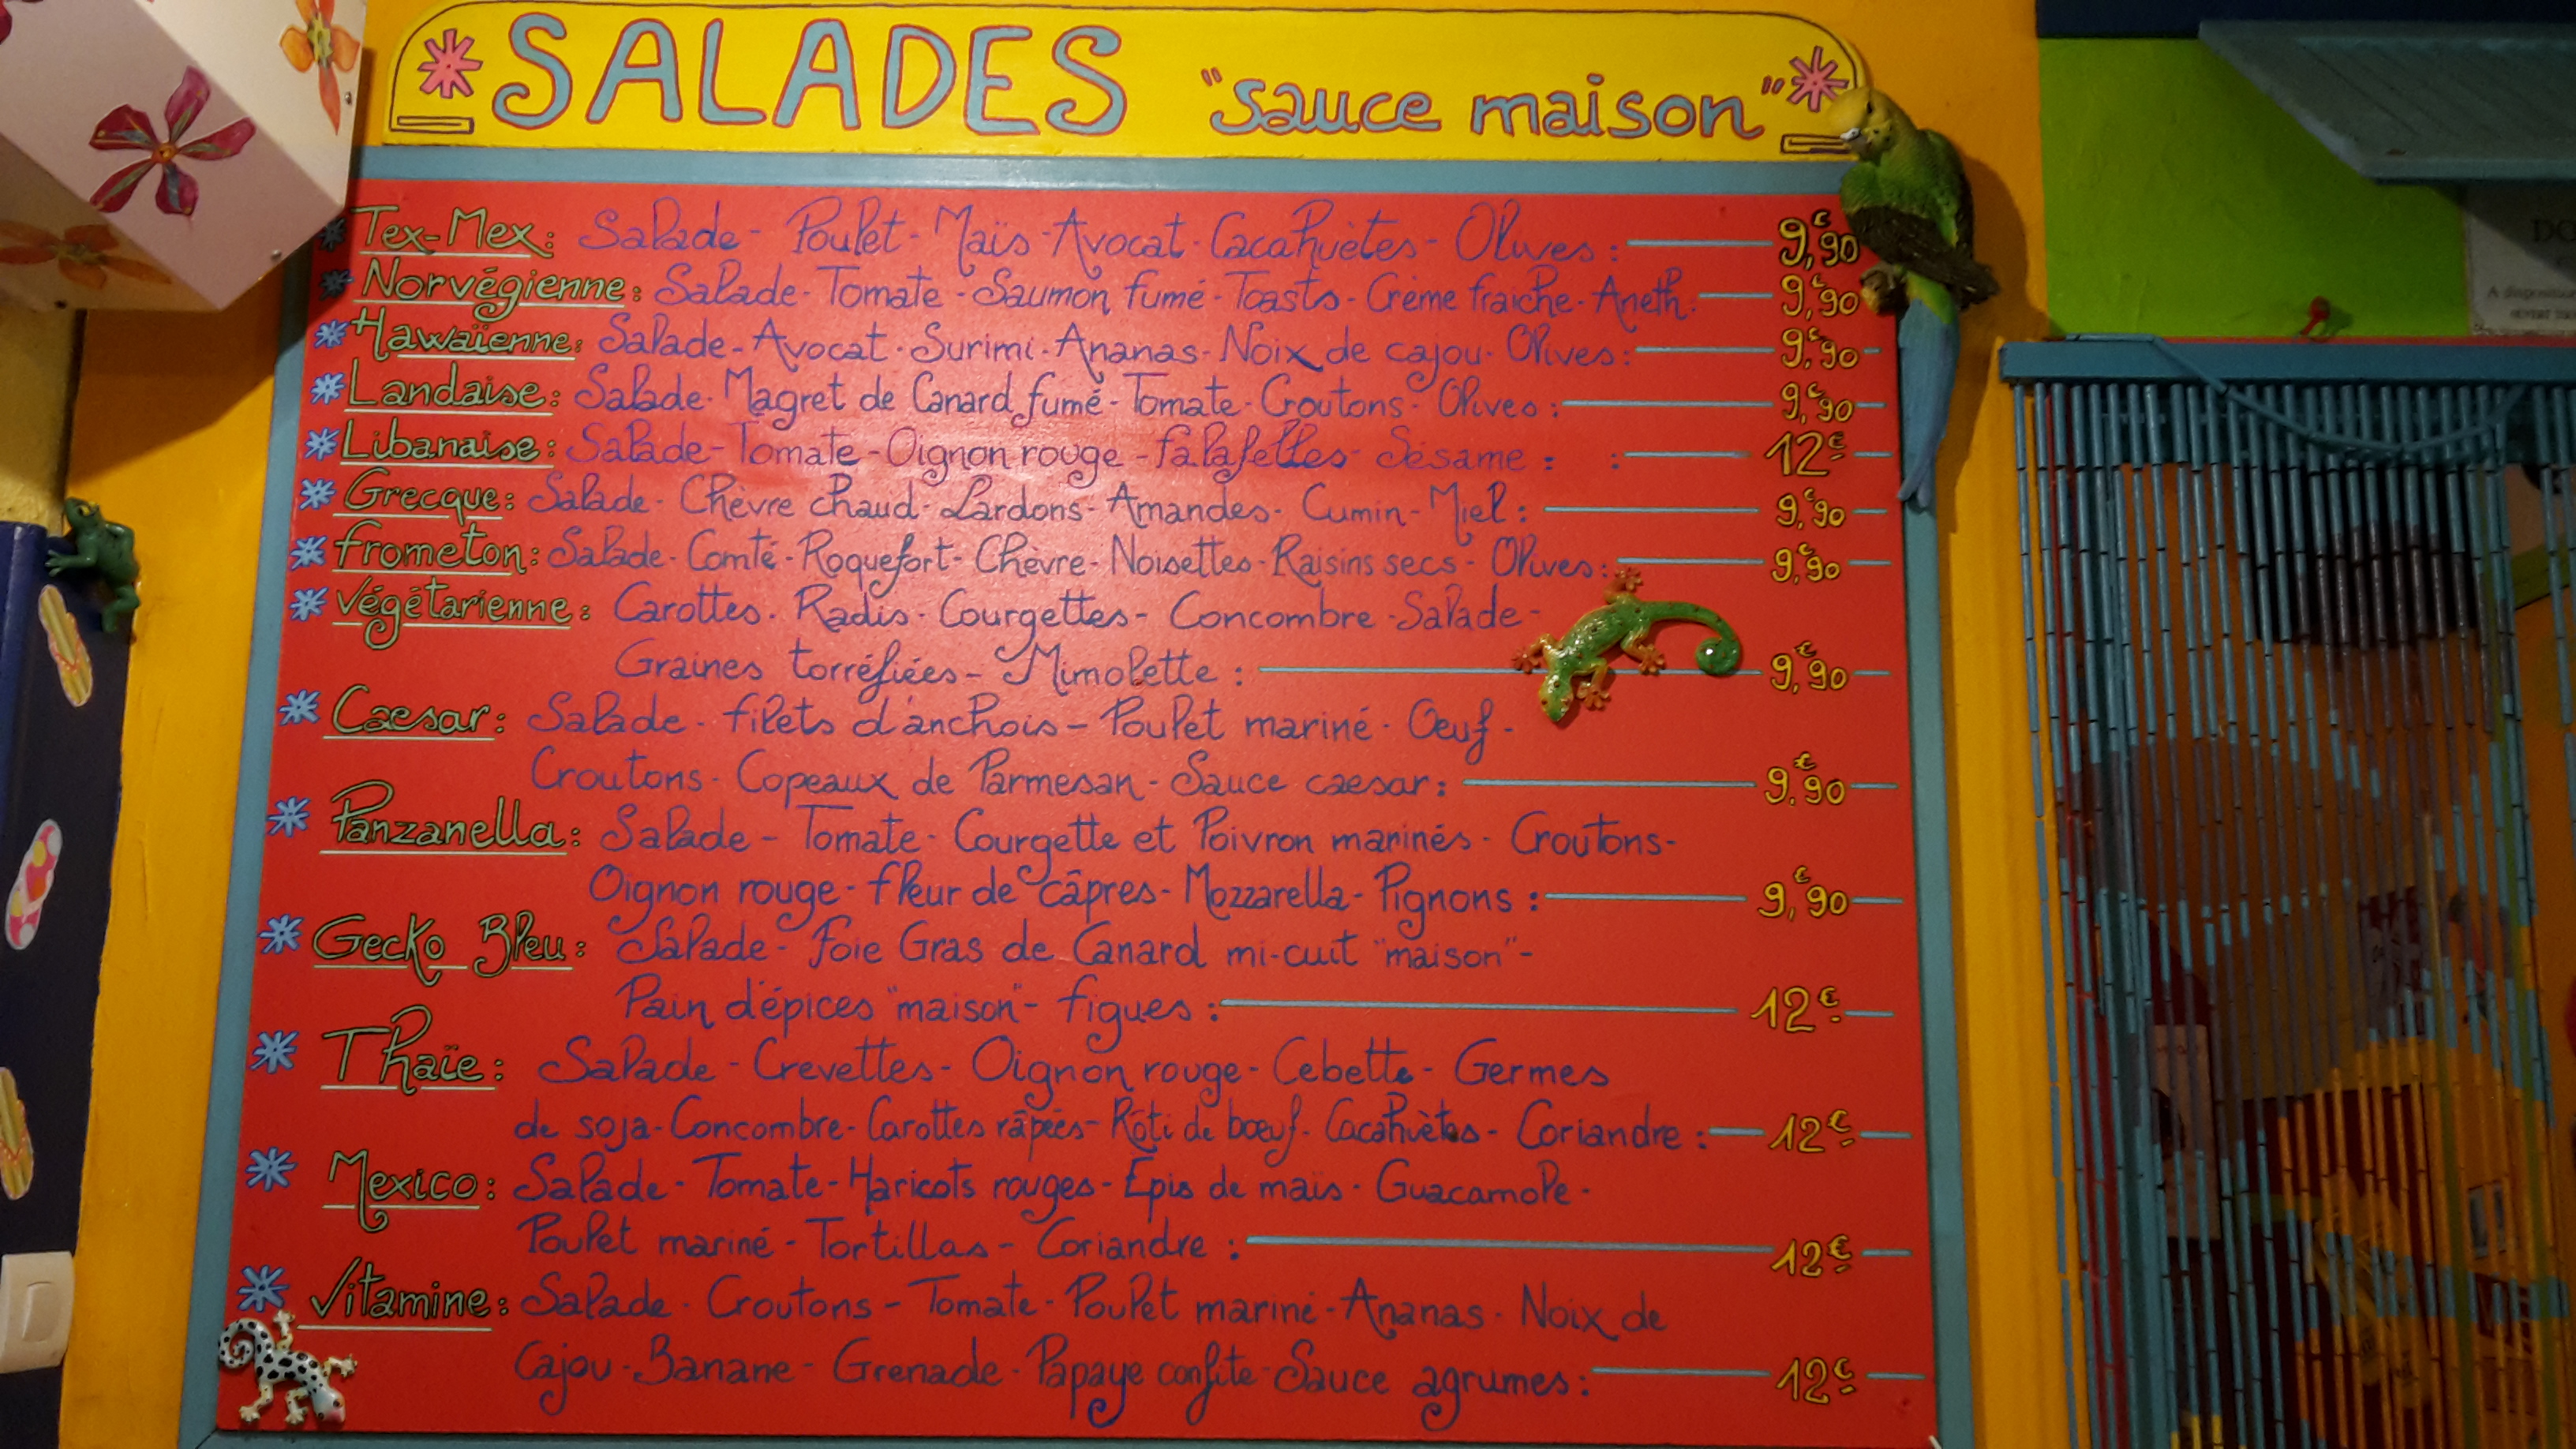 SALADES "sauce maison"
Tex-Mex: Salade - Poulet - Maïs - Avocat - Cacahuètes - Olives : 9,€90
Norvégienne: Salade - Tomate - Saumon fumé - Toasts - Crème fraiche - Aneth. 9,€90
Hawaïenne: Salade - Avocat - Surimi - Ananas - Noix de cajou - Olives: 9,€90
Landaise: Salade - Magret de Canard fumé - Tomate - Croutons - Olives: 9,€90
Libanaise: Salade - Tomate - Oignon rouge - falafelles - Sésame : : 12€
Grecque: Salade - Chèvre chaud - Lardons - Amandes - Cumin - Miel: 9,€90
frometon: Salade - Comté - Roquefort - Chèvre - Noisettes - Raisins secs - Olives: 9,€90
Végétarienne: Carottes - Radis - Courgettes - Concombre - Salade -
Graines torréfiées - Mimolette : 9,€90
Caesar: Salade - filets d'anchois - Poulet mariné - Oeuf -
Croutons - Copeaux de Parmesan - Sauce caesar: 9,€90
Panzanella: Salade - Tomate - Courgette et Poivron marinés - Croutons -
Oignon rouge - fleur de câpres - Mozzarella - Pignons : 9,€90
Gecko Bleu: Salade - foie Gras de Canard mi-cuit "maison" -
Pain d'épices "maison" - figues : 12€
Thaïe: Salade - Crevettes - Oignon rouge - Cebette - Germes
de soja - Concombre - Carottes râpées - Rôti de bœuf - Cacahuètes - Coriandre : 12€
Mexico: Salade - Tomate - Haricots rouges - Epis de maïs - Guacamole -
Poulet mariné - Tortillas - Coriandre : 12€
Vitamine: Salade - Croutons - Tomate - Poulet mariné - Ananas - Noix de
Cajou - Banane - Grenade - Papaye confite - Sauce agrumes: 12€